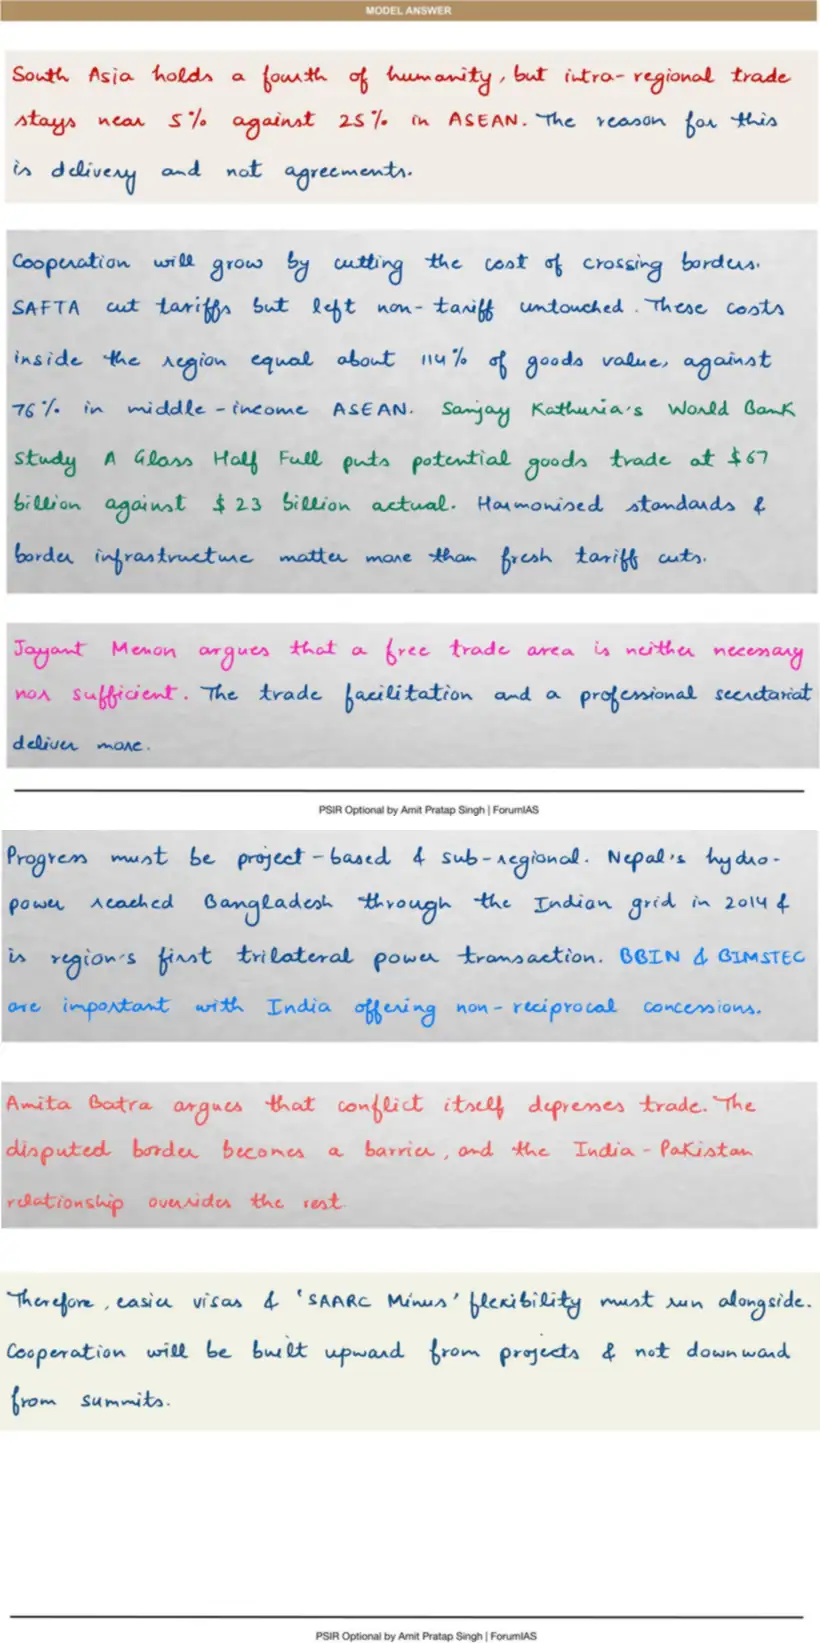 MODEL ANSWER
South Asia holds a fourth of humanity, but intra-regional trade
stays near 5% against 25% in ASEAN. The reason for this
is delivery and not agreements.
Cooperation will grow by cutting the cost of crossing borders.
SAFTA cut tariffs but left non-tariff untouched. These costs
inside the region equal about 114% of goods value, against
76% in middle-income ASEAN. Sanjay Kathuria's World Bank
study A Glass Half Full puts potential goods trade at $67
billion against $23 billion actual. Harmonised standards &
border infrastructure matter more than fresh tariff cuts.
Jayant Menon argues that a free trade area is neither necessary
nor sufficient. The trade facilitation and a professional secretariat
deliver more.
PSIR Optional by Amit Pratap Singh | ForumIAS
Progress must be project-based & sub-regional. Nepal's hydro-
power reached Bangladesh through the Indian grid in 2014 &
is region's first trilateral power transaction. BBIN & BIMSTEC
are important with India offering non-reciprocal concessions.
Amita Batra argues that conflict itself depresses trade. The
disputed border becomes a barrier, and the India-Pakistan
relationship overrides the rest.
Therefore, easier visas & 'SAARC Minus' flexibility must run alongside.
Cooperation will be built upward from projects & not downward
from summits.
PSIR Optional by Amit Pratap Singh | ForumIAS